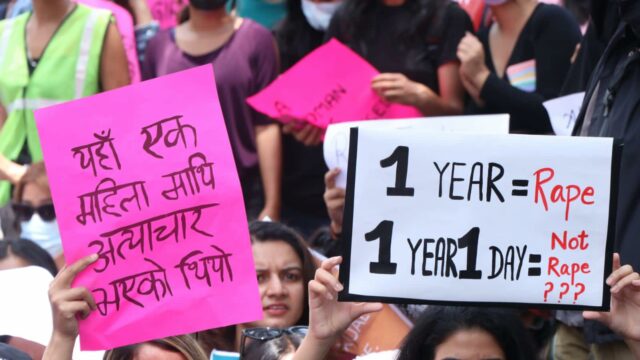 यहाँ एक
महिला माथि
अत्याचार
भएको थियो
1 YEAR = Rape
1 YEAR 1 DAY = Not Rape ???